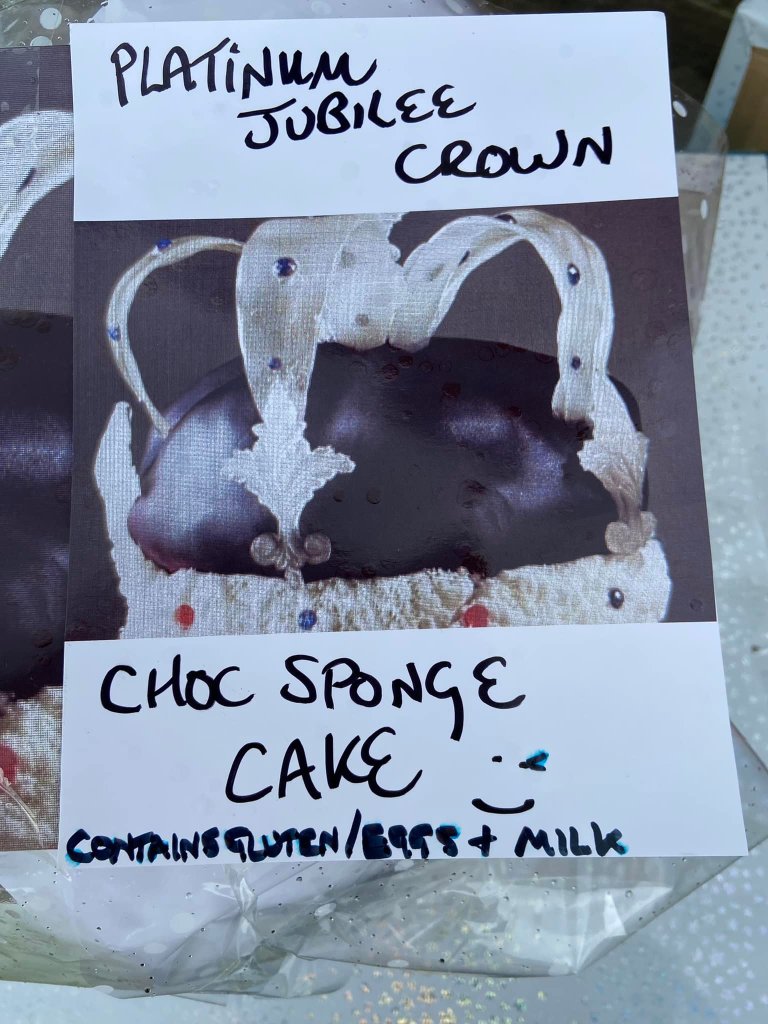 PLATINUM
JUBILEE
CROWN
CHOC SPONGE
CAKE
CONTAINS GLUTEN/EGGS + MILK